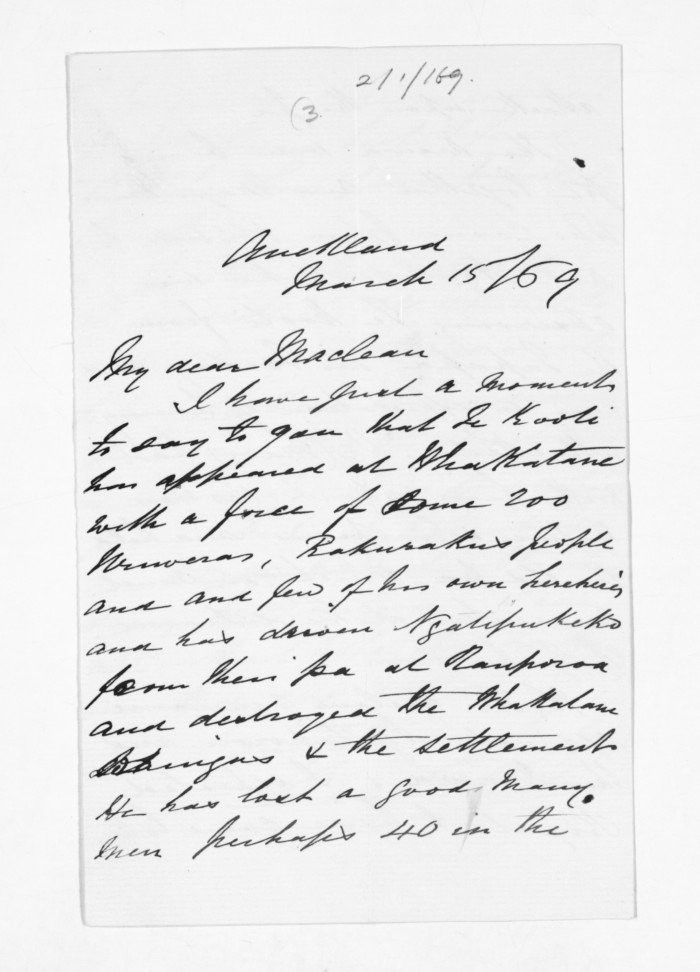 2/1/169.
(3.
Auckland
March 15/69
My dear Maclean
I have just a moment
to say to you that Te Kooti
has appeared at Whakatane
with a force of some 200
Urweras, Rakuraku's people
and and few of his own herehere's
and has driven Ngatipukeko
from their pa at Rauporoa
and destroyed the Whakatane
& the settlements
He has lost a good many
men perhaps 40 in the